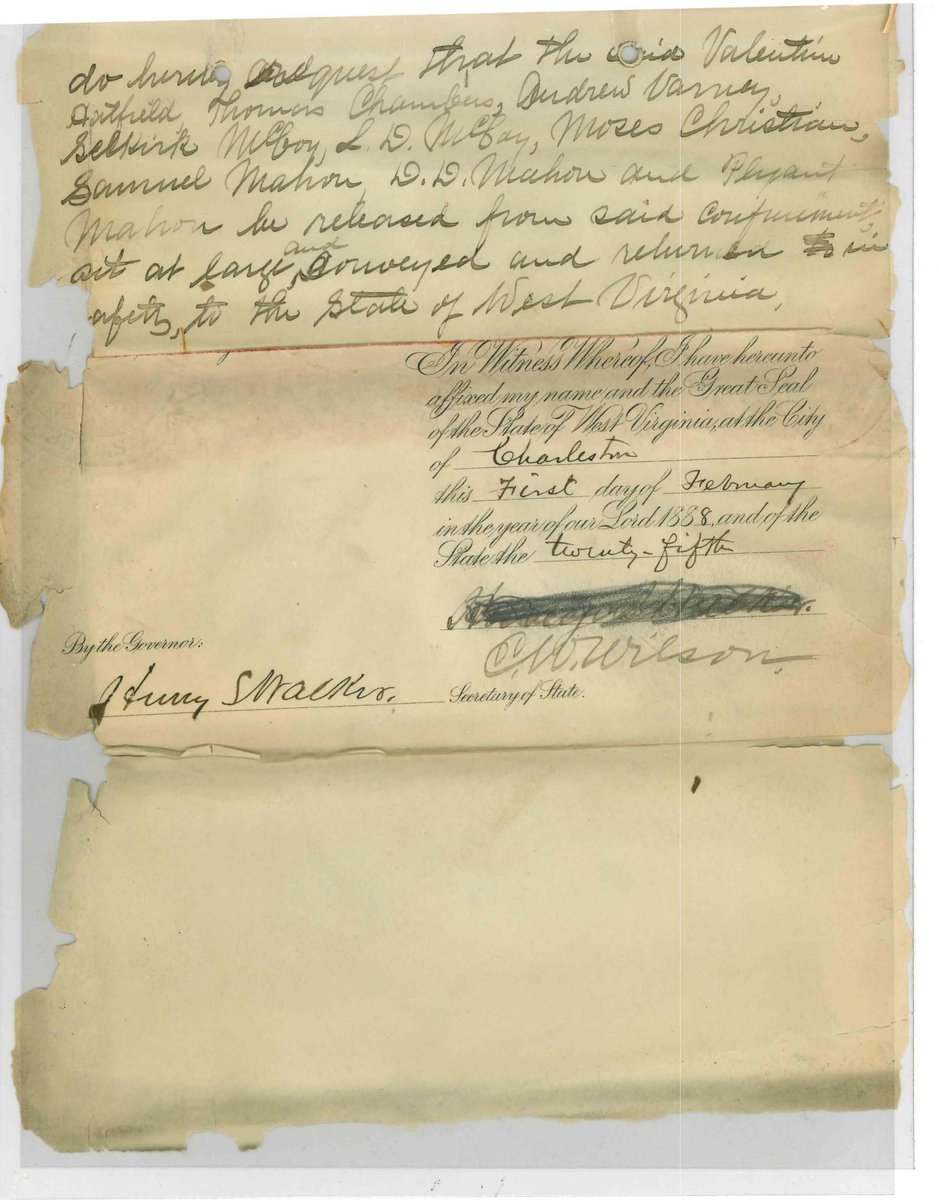 do hereby request that the said Valentin
Hatfield, Thomas Chambers, Andrew Varney,
Selkirk McCoy, L. D. McCoy, Moses Christian,
Samuel Mahon, D. D. Mahon and Plyant
Mahon be released from said confinement,
sit at large, and conveyed and returned in
afety, to the State of West Virginia,
In Witness Whereof, I have hereunto
affixed my name and the Great Seal
of the State of West Virginia, at the City
of Charleston
this First day of February
in the year of our Lord 1888, and of the
State the twenty-fifth
E. W. Wilson
By the Governor:
Henry S Walker.
Secretary of State.